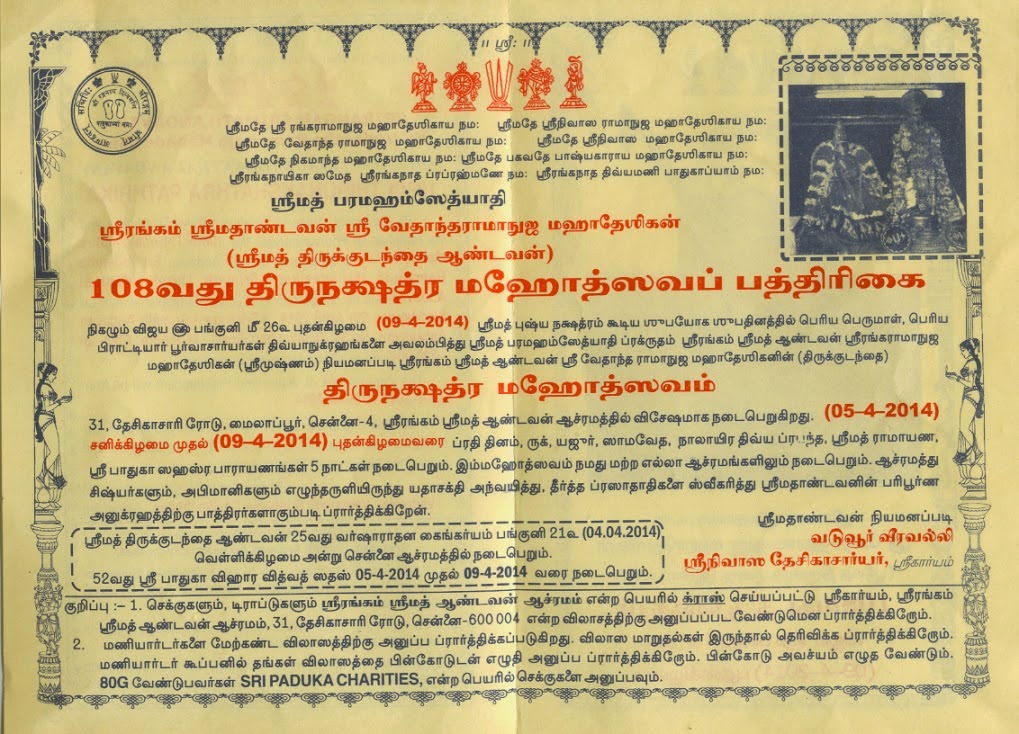 ॥ ஸ்ரீ: ॥
ஸ்ரீமதே ஸ்ரீ ரங்கராமாநுஜ மஹாதேஶிகாய நம: ஸ்ரீமதே ஸ்ரீநிவாஸ ராமாநுஜ மஹாதேஶிகாய நம:
ஸ்ரீமதே வேதாந்த ராமாநுஜ மஹாதேஶிகாய நம: ஸ்ரீமதே ஸ்ரீநிவாஸ மஹாதேஶிகாய நம:
ஸ்ரீமதே நிகமாந்த மஹாதேஶிகாய நம: ஸ்ரீமதே பகவதே பாஷ்யகாராய மஹாதேஶிகாய நம:
ஸ்ரீரங்கநாயிகா ஸமேத ஸ்ரீரங்கநாத ப்ரப்ரஹ்மணே நம: ஸ்ரீரங்கநாத திவ்யமணி பாதுகாப்யாம் நம:
ஸ்ரீமத் பரமஹம்ஸேத்யாதி
ஸ்ரீரங்கம் ஸ்ரீமதாண்டவன் ஸ்ரீ வேதாந்தராமாநுஜ மஹாதேஶிகன்
(ஸ்ரீமத் திருக்குடந்தை ஆண்டவன்)
108வது திருநக்ஷத்ர மஹோத்ஸவப் பத்திரிகை
நிகழும் விஜய ௵ பங்குனி ௴ 26௳ புதன்கிழமை (09-4-2014) ஸ்ரீமத் புஷ்ய நக்ஷத்ரம் கூடிய ஶுபயோக ஶுபதினத்தில் பெரிய பெருமாள், பெரிய
பிராட்டியார் பூர்வாசார்யர்கள் திவ்யாநுக்ரஹங்களை அவலம்பித்து ஸ்ரீமத் பரமஹம்ஸேத்யாதி ப்ரக்ருதம் ஸ்ரீரங்கம் ஸ்ரீமத் ஆண்டவன் ஸ்ரீரங்கராமாநுஜ
மஹாதேஶிகன் (ஸ்ரீமுஷ்ணம்) நியமனப்படி ஸ்ரீரங்கம் ஸ்ரீமத் ஆண்டவன் ஸ்ரீ வேதாந்த ராமாநுஜ மஹாதேஶிகனின் (திருக்குடந்தை)
திருநக்ஷத்ர மஹோத்ஸவம்
31, தேசிகாசாரி ரோடு, மைலாப்பூர், சென்னை-4, ஸ்ரீரங்கம் ஸ்ரீமத் ஆண்டவன் ஆச்ரமத்தில் விசேஷமாக நடைபெறுகிறது. (05-4-2014)
சனிக்கிழமை முதல் (09-4-2014) புதன்கிழமைவரை ப்ரதி தினம், ருக், யஜுர், ஸாமவேத, நாலாயிர திவ்ய ப்ரபந்த, ஸ்ரீமத் ராமாயண,
ஸ்ரீ பாதுகா ஸஹஸ்ர பாராயணங்கள் 5 நாட்கள் நடைபெறும். இம்மஹோத்ஸவம் நமது மற்ற எல்லா ஆச்ரமங்களிலும் நடைபெறும். ஆச்ரமத்து
சிஷ்யர்களும், அபிமானிகளும் எழுந்தருளியிருந்து யதாசக்தி அந்வயித்து, தீர்த்த ப்ரஸாதாதிகளை ஸ்வீகரித்து ஸ்ரீமதாண்டவனின் பரிபூர்ண
அனுக்ரஹத்திற்கு பாத்திரர்களாகும்படி ப்ரார்த்திக்கிறேன்.
ஸ்ரீமதாண்டவன் நியமனப்படி
வடுவூர் வீரவல்லி
ஸ்ரீநிவாஸ தேசிகாசார்யர், ஸ்ரீகார்யம்
ஸ்ரீமத் திருக்குடந்தை ஆண்டவன் 25வது வர்ஷாராதன கைங்கர்யம் பங்குனி 21௳ (04.04.2014)
வெள்ளிக்கிழமை அன்று சென்னை ஆச்ரமத்தில் நடைபெறும்.
52வது ஸ்ரீ பாதுகா விஹார வித்வத் ஸதஸ் 05-4-2014 முதல் 09-4-2014 வரை நடைபெறும்.
குறிப்பு :- 1. செக்குகளும், டிராப்டுகளும் ஸ்ரீரங்கம் ஸ்ரீமத் ஆண்டவன் ஆச்ரமம் என்ற பெயரில் க்ராஸ் செய்யப்பட்டு ஸ்ரீகார்யம், ஸ்ரீரங்கம்
ஸ்ரீமத் ஆண்டவன் ஆச்ரமம், 31, தேசிகாசாரி ரோடு, சென்னை-600 004 என்ற விலாசத்திற்கு அனுப்பப்பட வேண்டுமென ப்ரார்த்திக்கிறோம்.
2. மணியார்டர்களை மேற்கண்ட விலாஸத்திற்கு அனுப்ப ப்ரார்த்திக்கப்படுகிறது. விலாஸ மாறுதல்கள் இருந்தால் தெரிவிக்க ப்ரார்த்திக்கிறோம்.
மணியார்டர் கூப்பனில் தங்கள் விலாஸத்தை பின்கோடுடன் எழுதி அனுப்ப ப்ரார்த்திக்கிறோம். பின்கோடு அவச்யம் எழுத வேண்டும்.
80G வேண்டுபவர்கள் SRI PADUKA CHARITIES, என்ற பெயரில் செக்குகளை அனுப்பவும்.